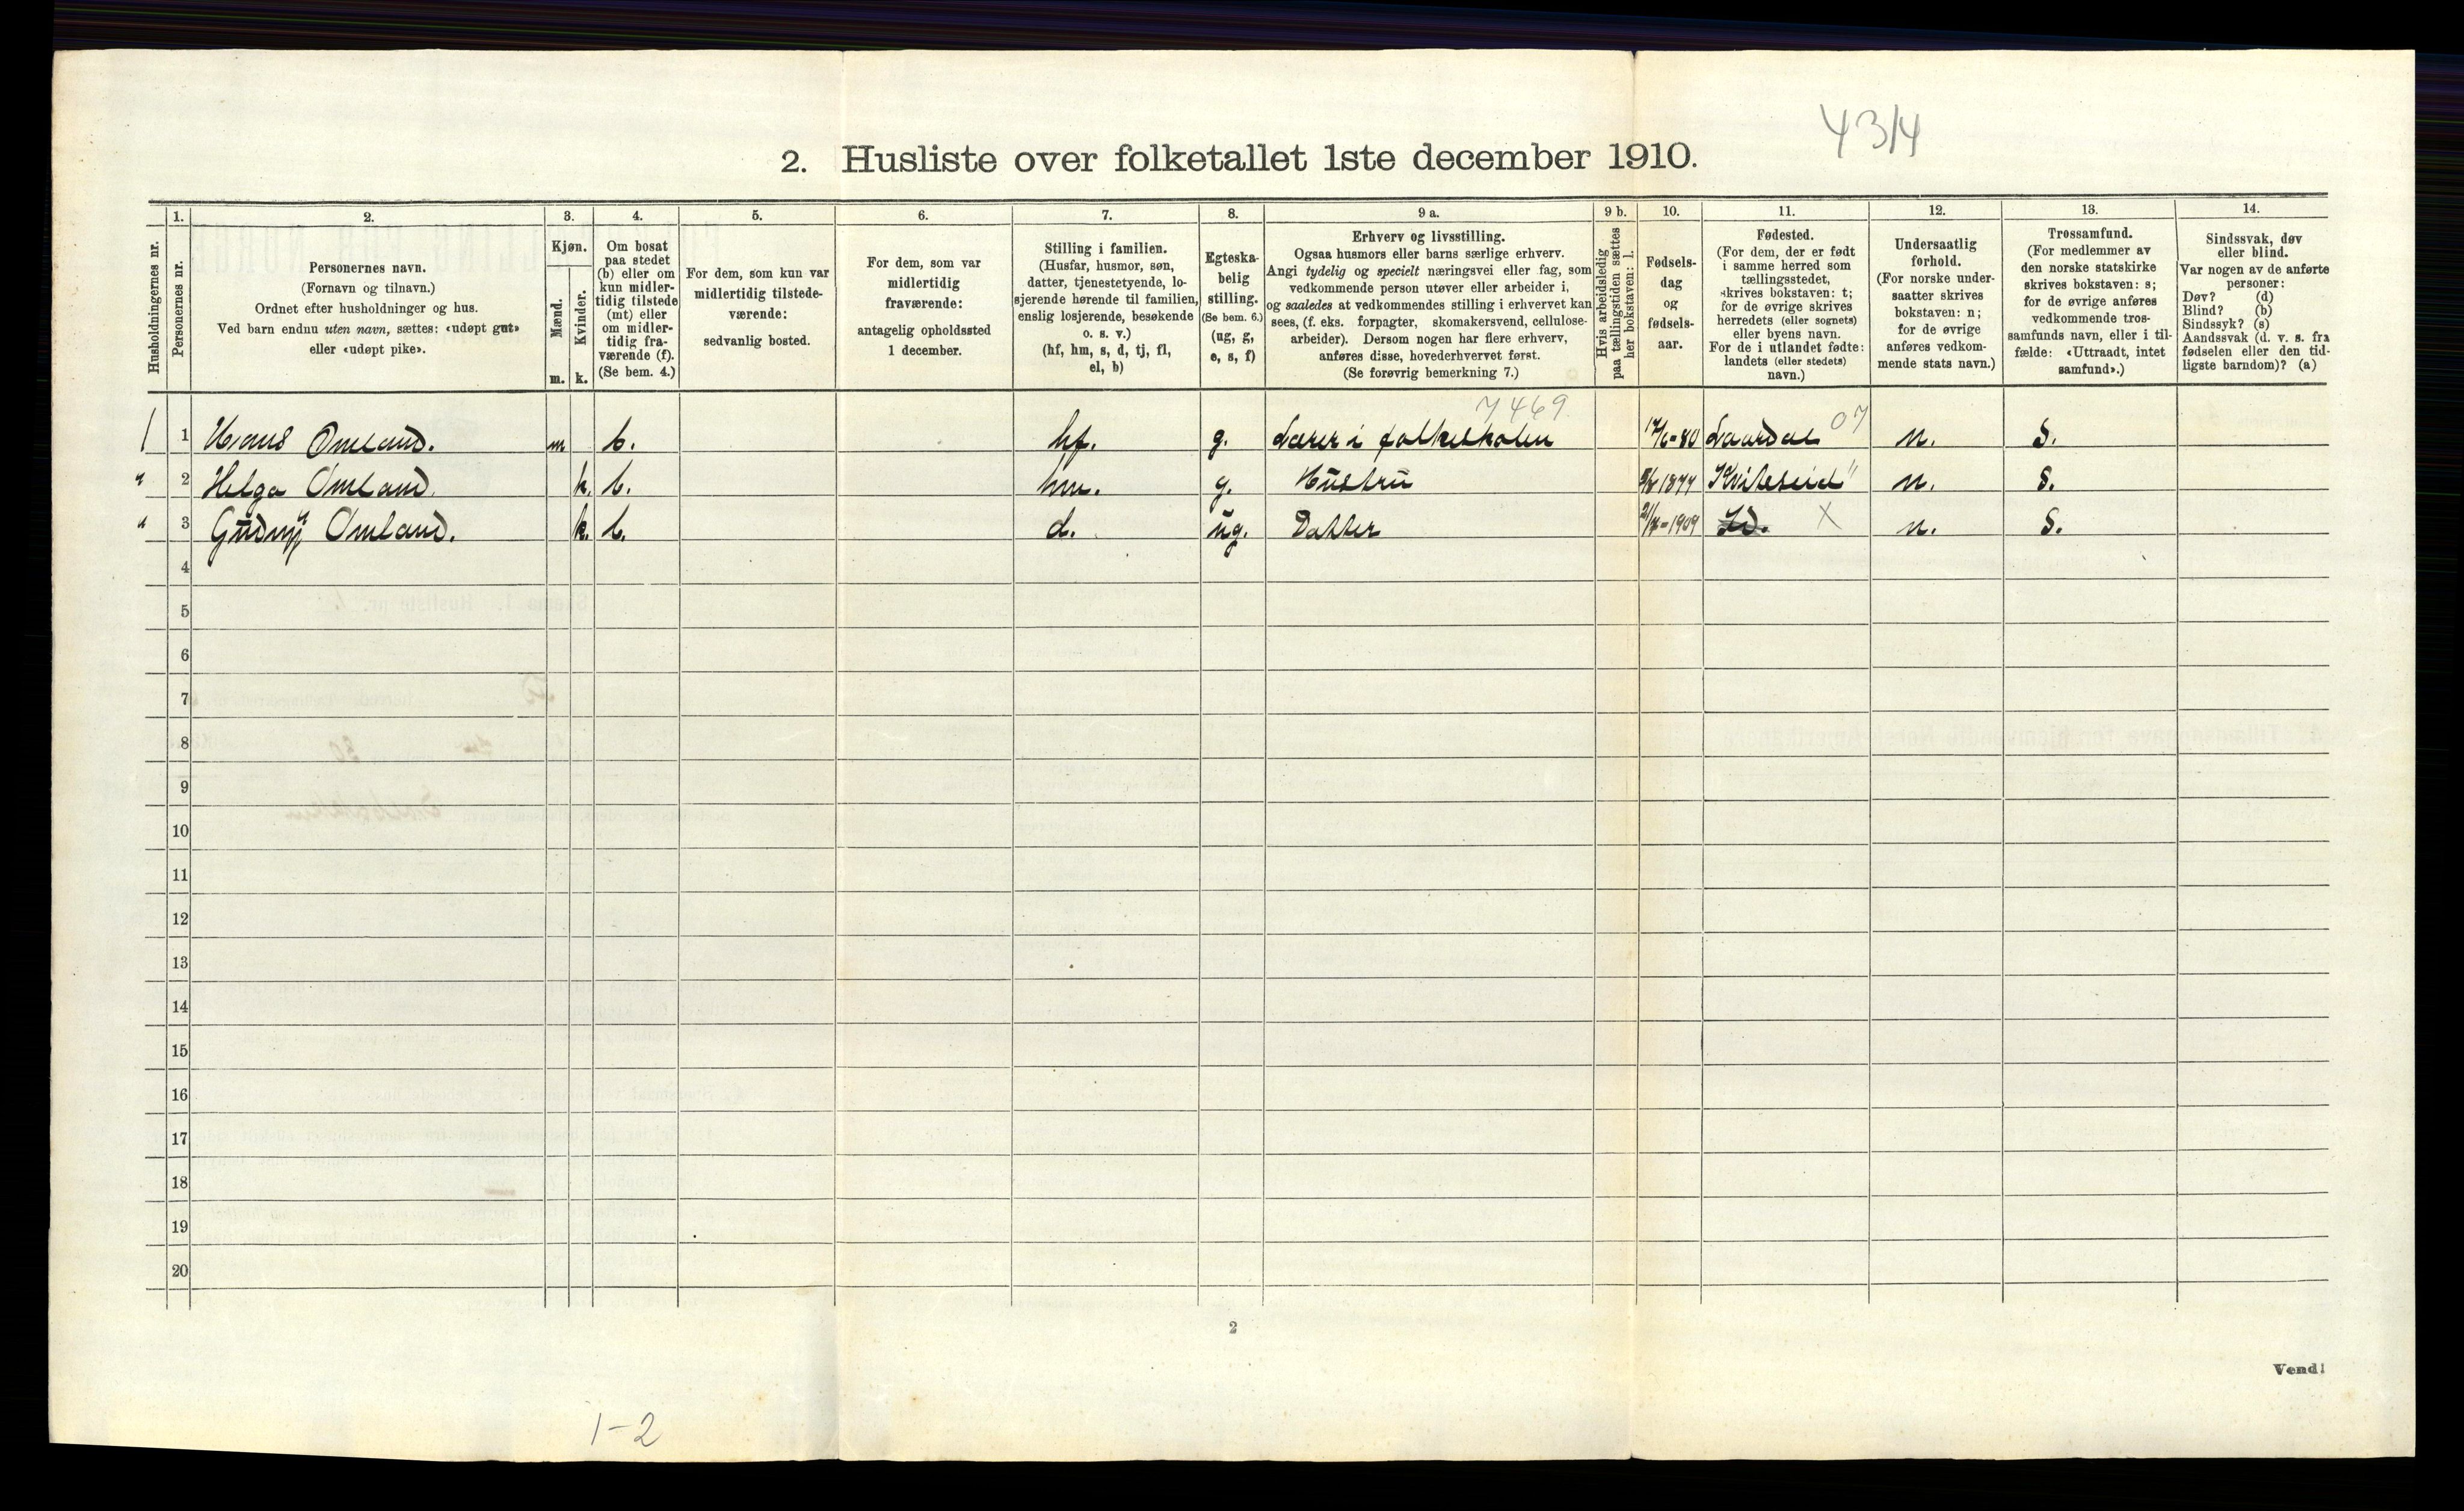 4314
2. Husliste over folketallet 1ste december 1910.
Husholdningernes nr.
1.
Personernes nr.
2.
Personernes navn.
(Fornavn og tilnavn.)
Ordnet efter husholdninger og hus.
Ved barn endnu uten navn, sættes: «udøpt gut»
eller «udøpt pike».
3.
Kjøn.
Mænd.
Kvinder.
m. k.
4.
Om bosat
paa stedet
(b) eller om
kun midler-
tidig tilstede
(mt) eller
om midler-
tidig fra-
værende (f).
(Se bem. 4.)
5.
For dem, som kun var
midlertidig tilstede-
værende:
sedvanlig bosted.
6.
For dem, som var
midlertidig
fraværende:
antagelig opholdssted
1 december.
7.
Stilling i familien.
(Husfar, husmor, søn,
datter, tjenestetyende, lo-
sjerende hørende til familien,
enslig losjerende, besøkende
o. s. v.)
(hf, hm, s, d, tj, fl,
el, b)
8.
Egteska-
belig
stilling.
(Se bem. 6.)
(ug, g,
e, s, f)
9 a.
Erhverv og livsstilling.
Ogsaa husmors eller barns særlige erhverv.
Angi tydelig og specielt næringsvei eller fag, som
vedkommende person utøver eller arbeider i,
og saaledes at vedkommendes stilling i erhvervet kan
sees, (f. eks. forpagter, skomakersvend, cellulose-
arbeider). Dersom nogen har flere erhverv,
anføres disse, hovederhvervet først.
(Se forøvrig bemerkning 7.)
9 b.
Hvis arbeidsledig
paa tællingstiden sættes
her bokstaven: l.
10.
Fødsels-
dag
og
fødsels-
aar.
11.
Fødested.
(For dem, der er født
i samme herred som
tællingsstedet,
skrives bokstaven: t;
for de øvrige skrives
herredets (eller sognets)
eller byens navn.
For de i utlandet fødte:
landets (eller stedets)
navn.)
12.
Undersaatlig
forhold.
(For norske under-
saatter skrives
bokstaven: n;
for de øvrige
anføres vedkom-
mende stats navn.)
13.
Trossamfund.
(For medlemmer av
den norske statskirke
skrives bokstaven: s;
for de øvrige anføres
vedkommende tros-
samfunds navn, eller i til-
fælde: «Uttraadt, intet
samfund».)
14.
Sindssvak, døv
eller blind.
Var nogen av de anførte
personer:
Døv? (d)
Blind? (b)
Sindssyk? (s)
Aandssvak (d. v. s. fra
fødselen eller den tid-
ligste barndom)? (a)
7469
1 1 Hans Omland. m b. hf. g. Lærer i folkeskolen 17/6-80 Laardal 07 n. S.
" 2 Helga Omland. k. b. hm. g. Hustru 1877 Kviteseid " n. S.
" 3 Gudny Omland. k. b. d. ug. Datter 21/7-1909 Id. X n. S.
4
5
6
7
8
9
10
11
12
13
14
15
16
17
18
19
20
2
Vend!
1-2